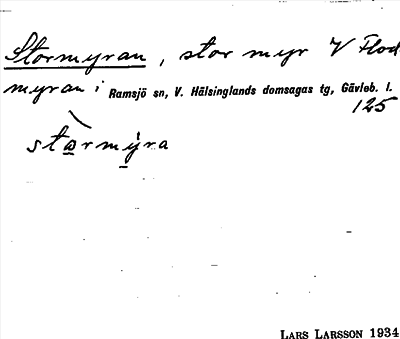 Stormyran, stor myr V Flod
myran i Ramsjö sn, V. Hälsinglands domsagas tg, Gävleb. l.
125
stormyra
LARS LARSSON 1934